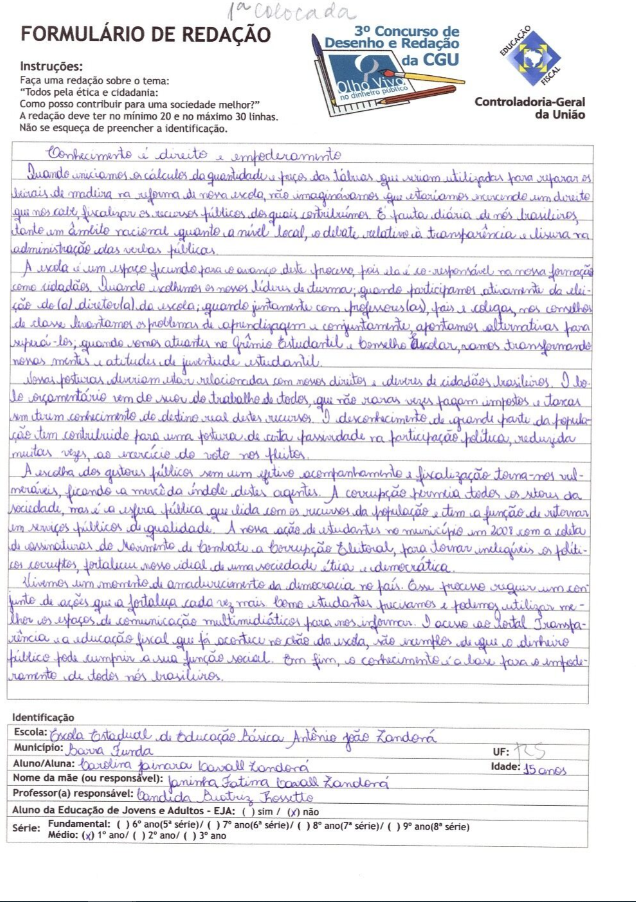 1ª colocada
FORMULÁRIO DE REDAÇÃO
3º Concurso de
Desenho e Redação
da CGU
Olho Vivo
no dinheiro público
EDUCAÇÃO
FISCAL
Controladoria-Geral
da União
Instruções:
Faça uma redação sobre o tema:
"Todos pela ética e cidadania:
Como posso contribuir para uma sociedade melhor?"
A redação deve ter no mínimo 20 e no máximo 30 linhas.
Não se esqueça de preencher a identificação.
Conhecimento é direito e empoderamento
Quando iniciamos os cálculos da quantidade e preços das tábuas que seriam utilizadas para reparar os
beirais de madeira na reforma de nossa escola, não imaginávamos que estaríamos exercendo um direito
que nos cabe, fiscalizar os recursos públicos dos quais contribuímos. É pauta diária de nós brasileiros,
tanto em âmbito nacional quanto a nível local, o debate relativo à transparência e lisura na
administração das verbas públicas.
A escola é um espaço fecundo para o avanço deste processo, pois ela é co-responsável na nossa formação
como cidadãos. Quando escolhemos os nossos líderes de turma; quando participamos ativamente da elei-
ção do(a) diretor(a) da escola; quando juntamente com professores(as), pais e colegas, nos conselhos
de classe levantamos os problemas de aprendizagem e conjuntamente, apontamos alternativas para
superá-los; quando somos atuantes no Grêmio Estudantil e Conselho Escolar, vamos transformando
nossas mentes e atitudes de juventude estudantil.
Nossas posturas deveriam estar relacionadas com nossos direitos e deveres de cidadãos brasileiros. O bo-
lo orçamentário vem do suor do trabalho de todos, que não raras vezes pagam impostos e taxas
sem terem conhecimento do destino real destes recursos. O desconhecimento de grande parte da popula-
ção tem contribuído para uma postura de certa passividade na participação política, reduzida
muitas vezes, ao exercício do voto nos pleitos.
A escolha dos gestores públicos sem um efetivo acompanhamento e fiscalização torna-nos vul-
neráveis, ficando a mercê da índole destes agentes. A corrupção permeia todos os setores da
sociedade, mas é a esfera pública que lida com os recursos da população e tem a função de retornar
em serviços públicos de qualidade. A nossa ação de estudantes no município em 2008 com a coleta
de assinaturas do Movimento de Combate a Corrupção Eleitoral, para tornar inelegíveis os políti-
cos corruptos, fortaleceu nosso ideal de uma sociedade ética e democrática.
Vivemos um momento de amadurecimento da democracia no país. Esse processo requer um con
junto de ações que a fortaleça cada vez mais. Como estudantes precisamos e podemos utilizar me-
lhor os espaços de comunicação multimidiáticos para nos informar. O acesso ao Portal Transpa-
rência e a educação fiscal que já acontece no chão da escola, são exemplos de que o dinheiro
público pode cumprir a sua função social. Em fim, o conhecimento é a base para o empode-
ramento de todos nós brasileiros.
Identificação
Escola: Escola Estadual de Educação Básica Antônio João Zandoná
Município: Barra Funda UF: RS
Aluno/Aluna: Carolina Jainara Cavall Zandoná Idade: 15 anos
Nome da mãe (ou responsável): Janinha Fatima Cavall Zandoná
Professor(a) responsável: Candida Beatriz Rossetto
Aluno da Educação de Jovens e Adultos - EJA: ( ) sim / (x) não
Série: Fundamental: ( ) 6º ano(5ª série)/ ( ) 7º ano(6ª série)/ ( ) 8º ano(7ª série)/ ( ) 9º ano(8ª série)
Médio: (x) 1º ano/ ( ) 2º ano/ ( ) 3º ano